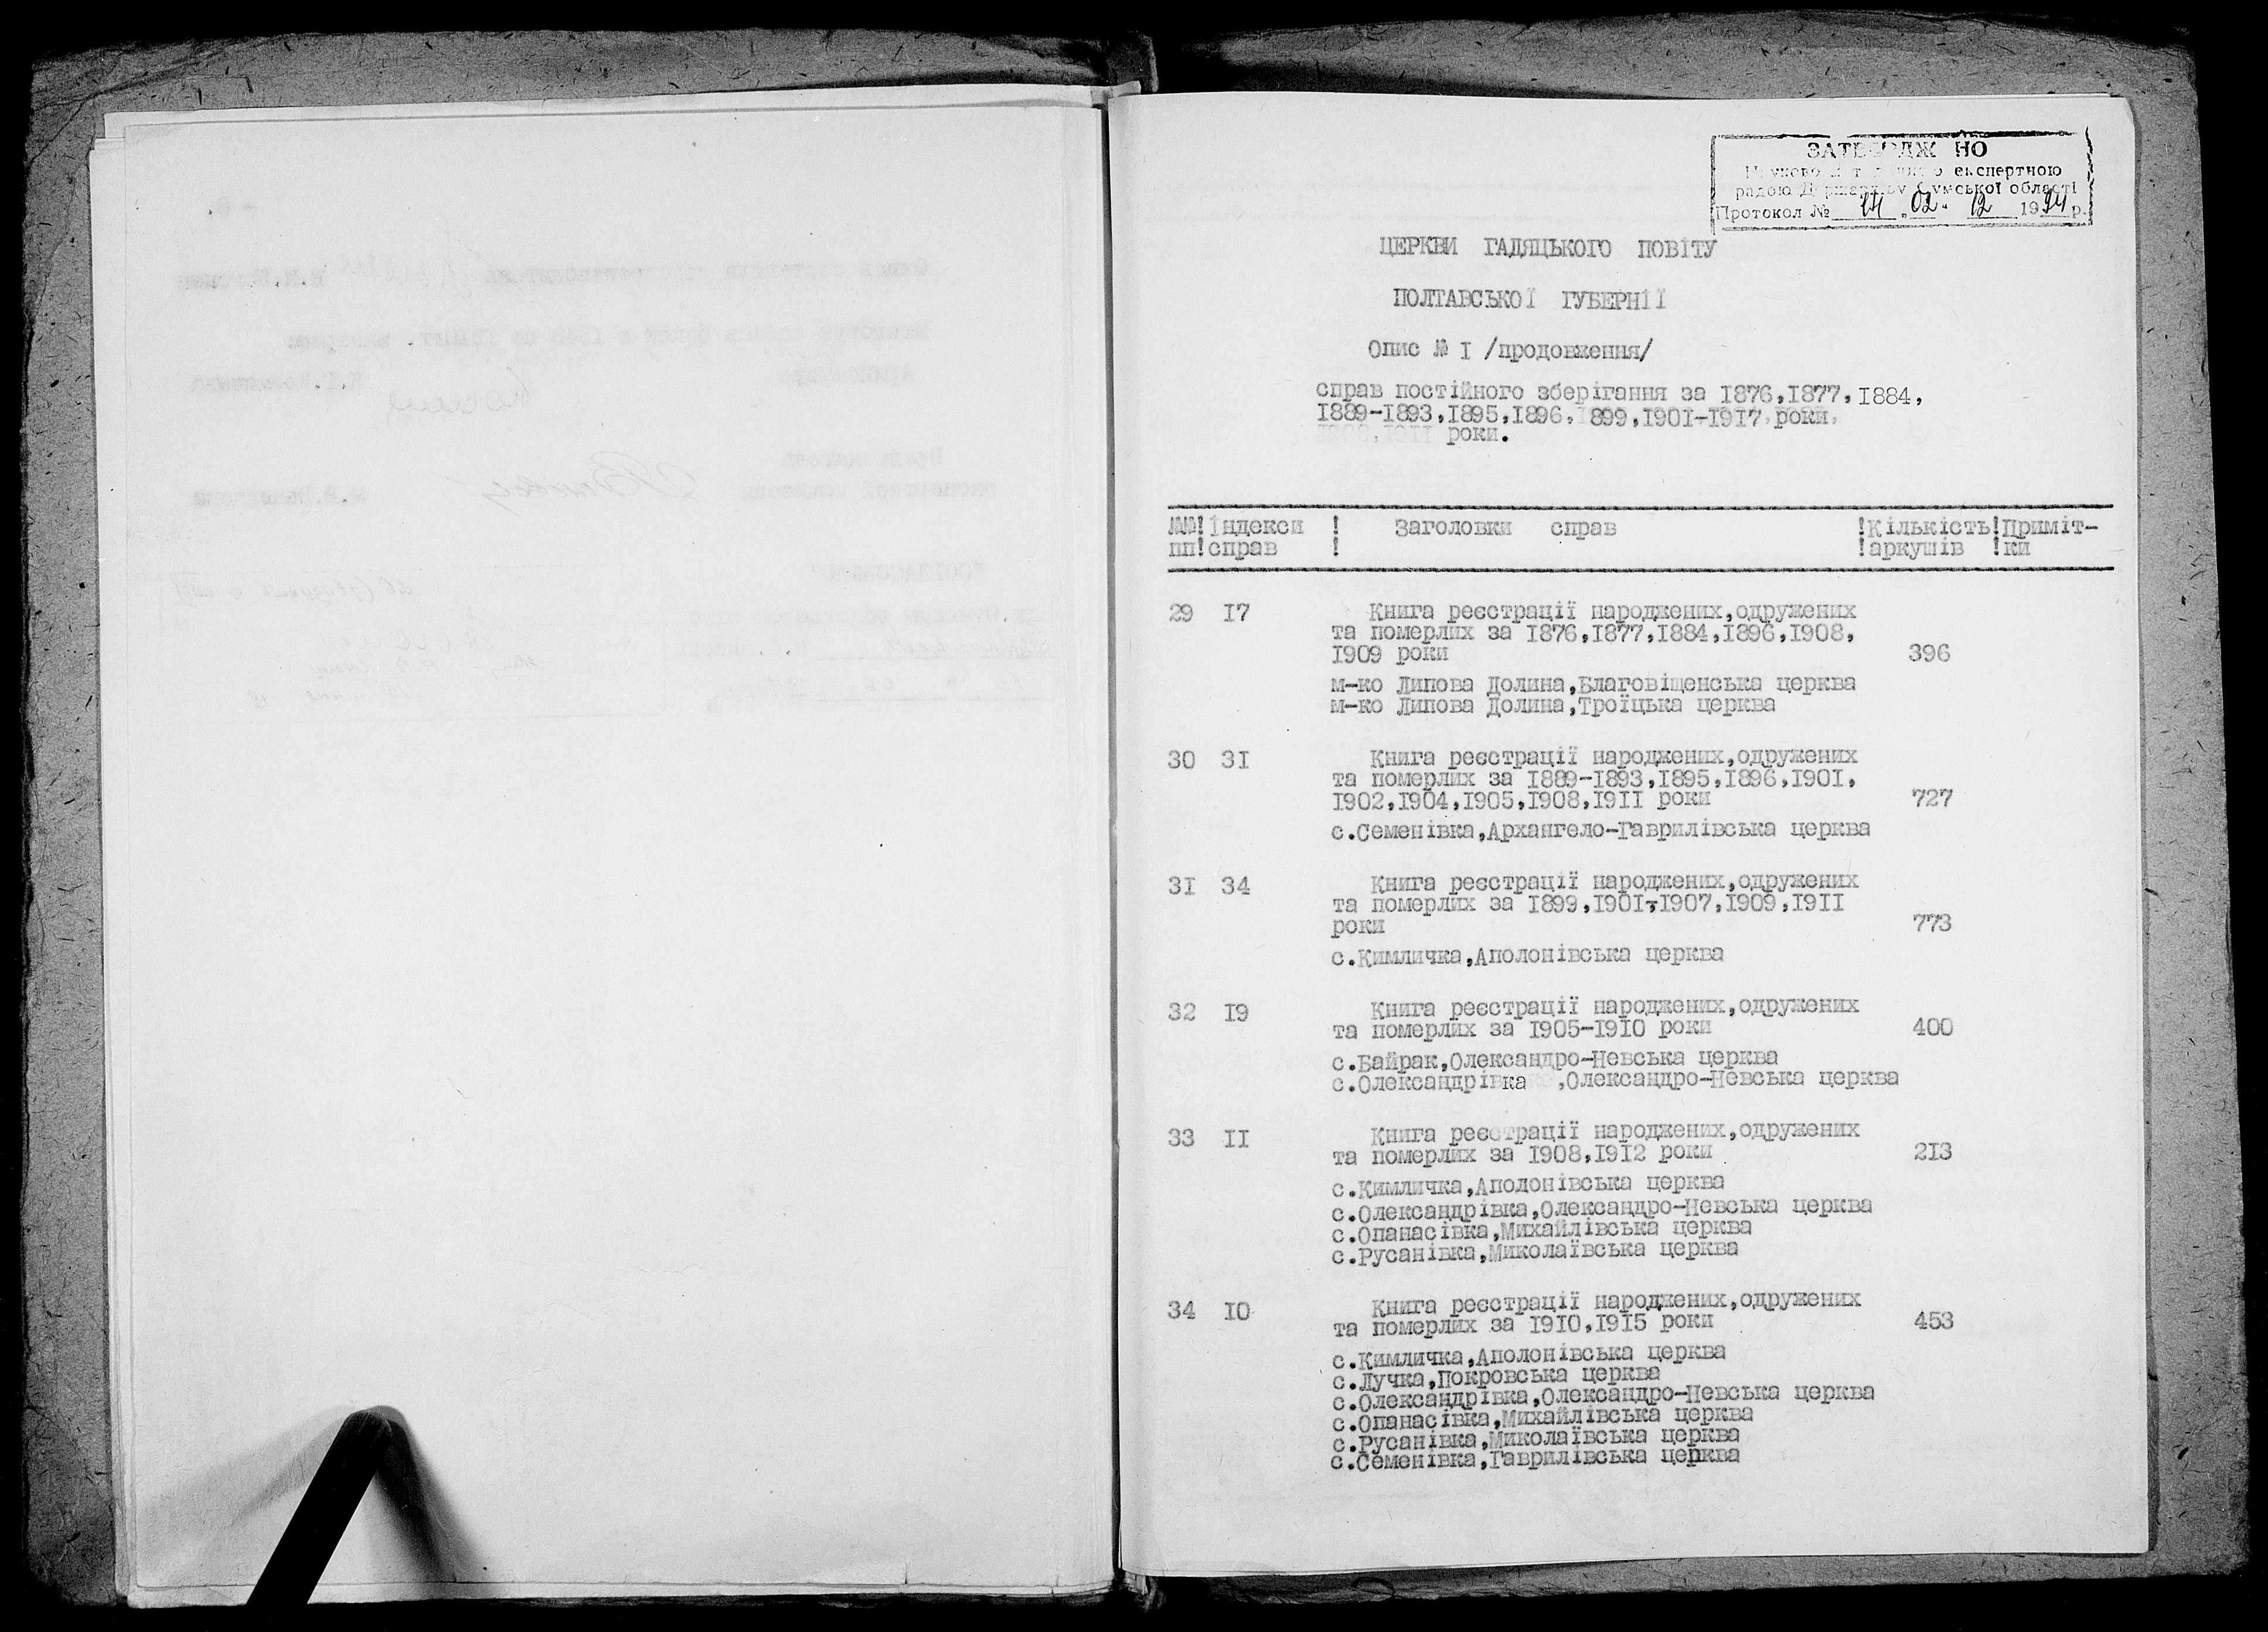 ЗАТВЕРДЖ НО
експертною
радою Держархіву Сумської області
Протокол № 14 „02" 12 1994 р.
ЦЕРКВИ ГАДЯЦЬКОГО ПОВІТУ
ПОЛТАВСЬКОЇ ГУБЕРНІЇ
Опис № I /продовження/
справ постійного зберігання за I876,I877,I884,
I889-I893,I895,I896,I899,I90I-I9I7 роки,
роки.
№№!Індекси ! Заголовки справ !Кількість!Приміт-
пп!справ ! !аркушів !ки
29 I7 Книга реєстрації народжених,одружених
та померлих за I876,I877,I884,I896,I908,
I909 роки 396
м-ко Липова Долина,Благовіщенська церква
м-ко Липова Долина,Троїцька церква
30 3I Книга реєстрації народжених,одружених
та померлих за I889-I893,I895,I896,I90I,
I902,I904,I905,I908,I9II роки 727
с.Семенівка,Архангело-Гаврилівська церква
3I 34 Книга реєстрації народжених,одружених
та померлих за I899,I90I-I907,I909,I9II
роки 773
с.Кимличка,Аполонівська церква
32 I9 Книга реєстрації народжених,одружених
та померлих за I905-I9I0 роки 400
с.Байрак,Олександро-Невська церква
с.Олександрівка ,Олександро-Невська церква
33 II Книга реєстрації народжених,одружених
та померлих за I908,I9I2 роки 2I3
с.Кимличка,Аполонівська церква
с.Олександрівка,Олександро-Невська церква
с.Опанасівка,Михайлівська церква
с.Русанівка,Миколаївська церква
34 I0 Книга реєстрації народжених,одружених
та померлих за I9I0,I9I5 роки 453
с.Кимличка,Аполонівська церква
с.Лучка,Покровська церква
с.Олександрівка,Олександро-Невська церква
с.Опанасівка,Михайлівська церква
с.Русанівка,Миколаївська церква
с.Семенівка,Гаврилівська церква